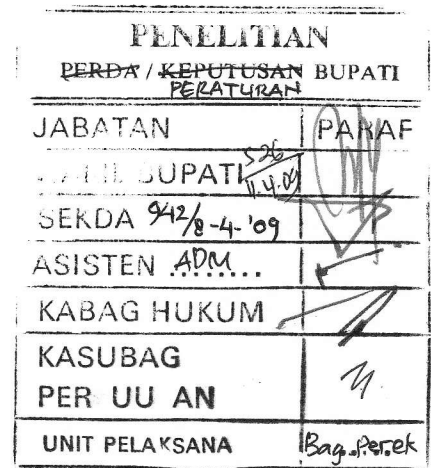 PENELITIAN
PERDA / KEPUTUSAN BUPATI
PERATURAN
JABATAN PARAF
WAKIL BUPATI 526/11.4.09
SEKDA 942/8-4-'09
ASISTEN ADM
KABAG HUKUM
KASUBAG
PER UU AN
UNIT PELAKSANA Bag. Perek